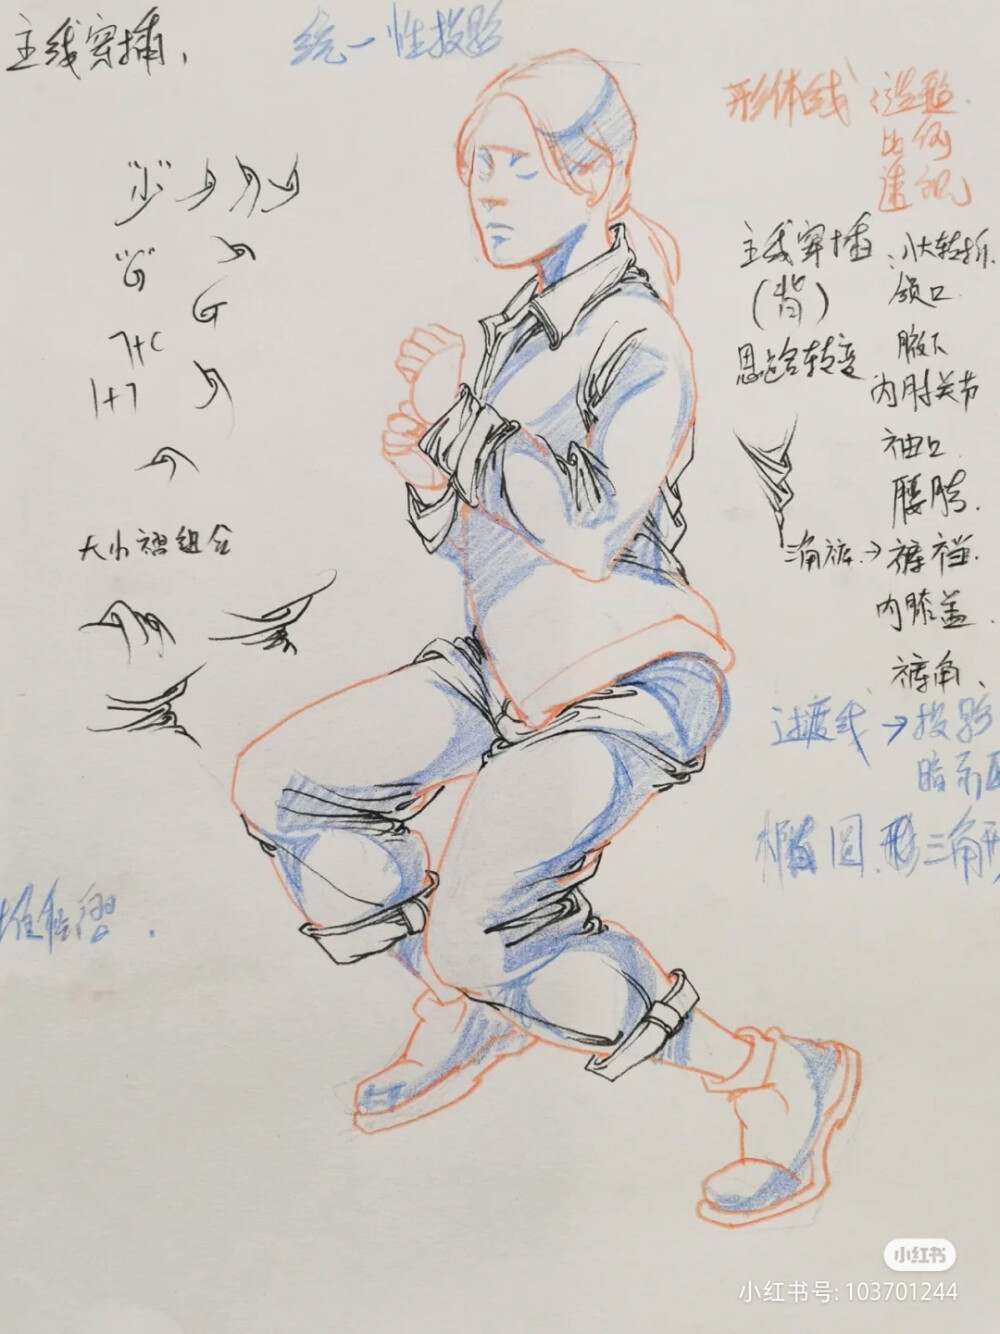 主线穿插,
统一性投影
形体线 :造型.
比例
透视
"少"
"G"
G
7+C
1+7
大小褶组合
堆积褶.
主线穿插 :八大转折.
(背)
领口
思路转变
腋下
内肘关节
袖口.
腰胯.
三角裤.→裤裆.
内膝盖.
裤角、
过渡线→投影
暗示
椭圆.形三角形
小红书
小红书号: 103701244